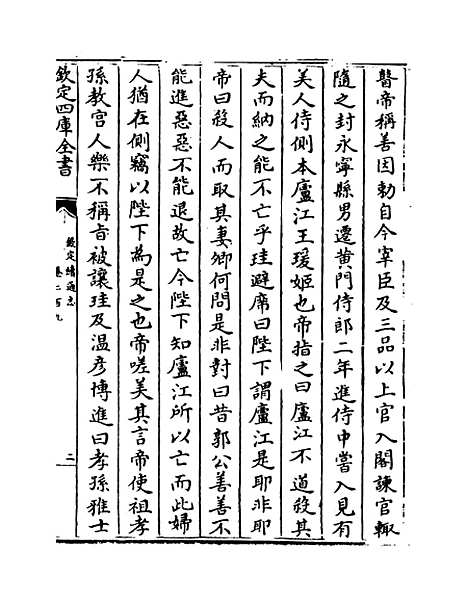 瞖帝稱善因勅自今宰臣及三品以上官入閤諫官輙
隨之封永寧縣男遷黄門侍郎二年進侍中嘗入見有
美人侍側本廬江王瑗姬也帝指之曰廬江不道殺其
夫而納之能不亡乎珪避席曰陛下謂廬江是耶非耶
帝曰殺人而取其妻卿何問是非對曰昔郭公善善不
能進惡惡不能退故亡今陛下知廬江所以亡而此婦
人猶在側竊以陛下為是之也帝嗟美其言帝使祖孝
孫教宫人樂不稱旨被讓珪及温彦博進曰孝孫雅士
欽定四庫全書
欽定續通志
卷二百九
二